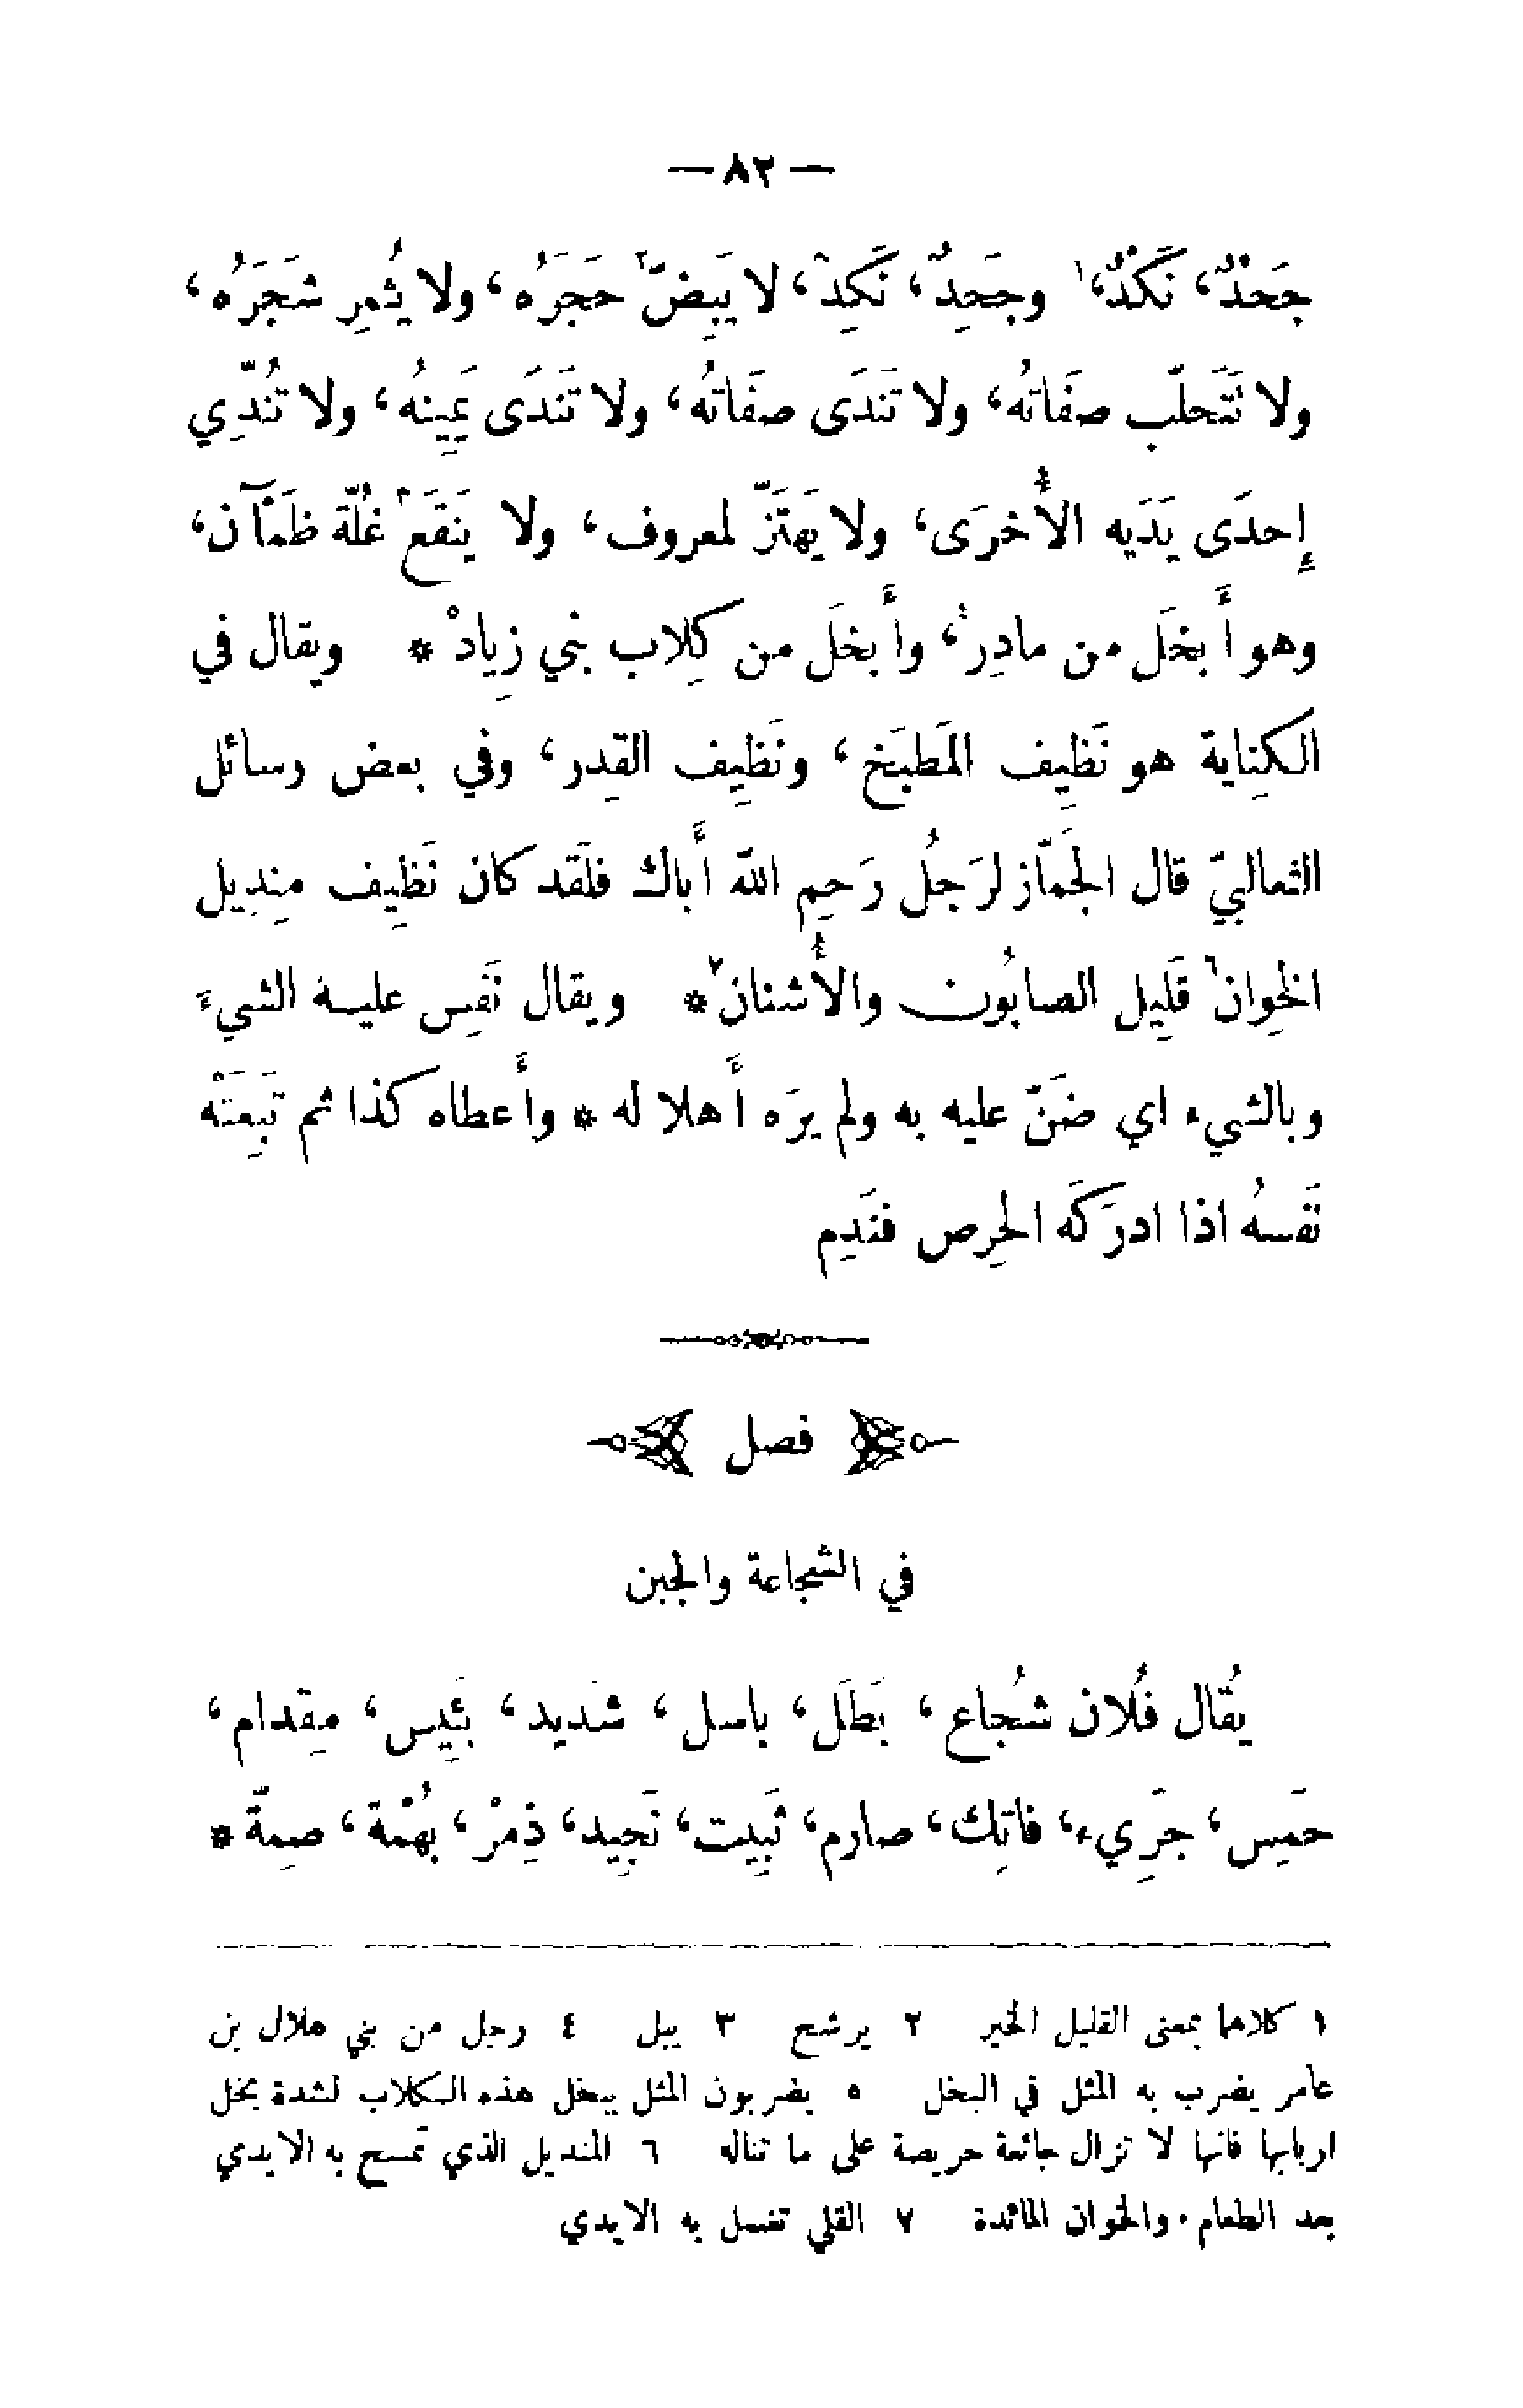 — ٨٢ —
جَحْدٌ، نَكْدٌ،١ وجَحِدٌ، نَكِدٌ، لا يَبِضّ٢ حَجَرُه، ولا يُثمِر شَجَرُه،
ولا تَتَحلّب صفَاتُه، ولا تَندَى صفَاتُه، ولا تَندَى يَمِينُه، ولا تُندِّي
إِحدَى يَدَيه الأُخرَى، ولا يَهتَزّ لمعروف، ولا يَنقَع٣ غُلّة ظَمْآن،
وهو أَبخَل من مادِر٤، وأَبخَل من كِلاب بني زِياد٥ * ويقال في
الكِناية هو نَظِيف المَطبَخ، ونَظِيف القِدر، وفي بعض رسائل
الثعالبيّ قال الجَمّاز لرَجُل رَحِم الله أَباك فلَقَد كان نَظِيف مِندِيل
الخِوان٦ قَلِيل الصابُون والأُشنان٧ * ويقال نَفِس عليه الشيءَ
وبالشيء اي ضَنّ عليه به ولم يرَه أَهلا له * وأَعطاه كذا ثم تَبِعَتْه
نَفسهُ اذا ادرَكَه الحِرص فنَدِم
فصل
في الشجاعة والجبن
يُقال فُلان شُجاع، بَطَل، باسل، شَديد، بَئِيس، مِقدام،
حمَِس، جَرِيء، فاتِك، صارم، ثَبِيت، نَجِيد، ذِمْر، بُهْمَة، صِمّة *
١ كلاهما بمعنى القليل الخير ٢ يرشح ٣ يبل ٤ رجل من بني هلال بن
عامر يضرب به المثل في البخل ٥ يضربون المثل ببخل هذه الكلاب لشدة بخل
اربابها فانها لا تزال جائعة حريصة على ما تناله ٦ المنديل الذي تمسح به الايدي
بعد الطعام. والخوان المائدة ٧ القلي تغسل به الايدي